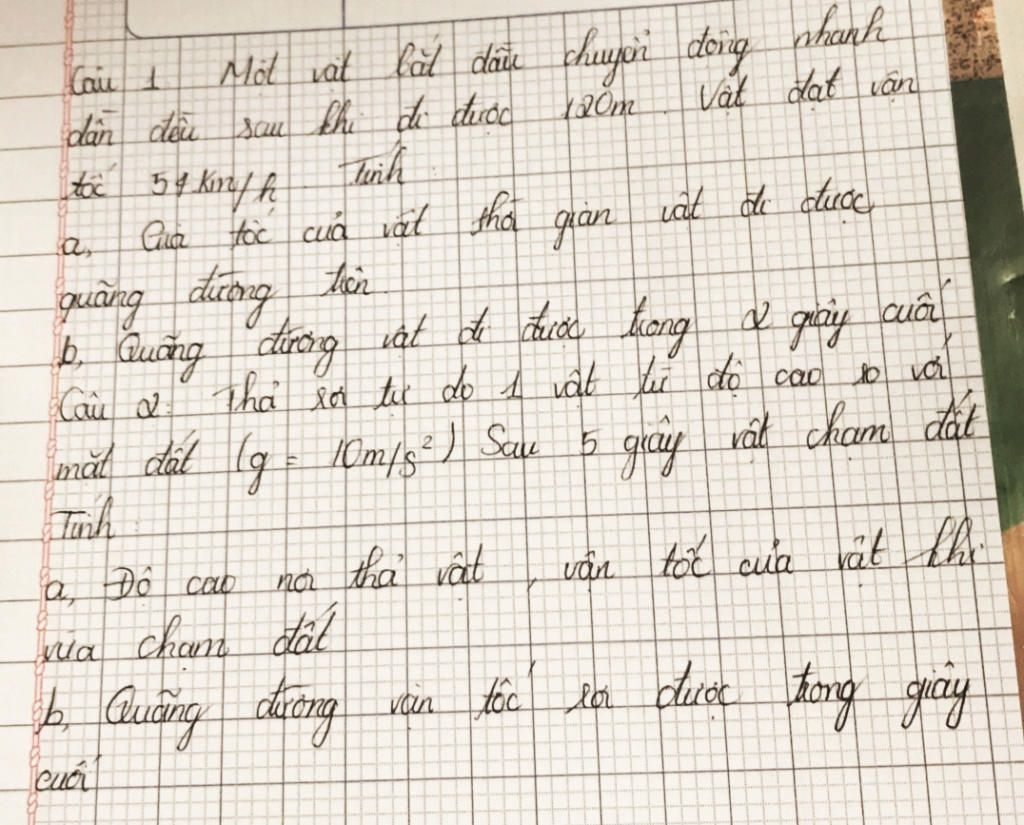 Câu 1 Một vật bắt đầu chuyển động nhanh
dần đều sau khi đi được 120m. Vật đạt vận
tốc 54km/h. Tính
a, Gia tốc của vật thời gian vật đi được
quãng đường trên.
b, Quãng đường vật đi được trong 2 giây cuối
Câu 2: Thả rơi tự do 1 vật từ độ cao so với
mặt đất (g = 10m/s²) Sau 5 giây vật chạm đất
Tính:
a, Độ cao nơi thả vật, vận tốc của vật khi
vừa chạm đất
b, Quãng đường vận tốc rơi được trong giây
cuối